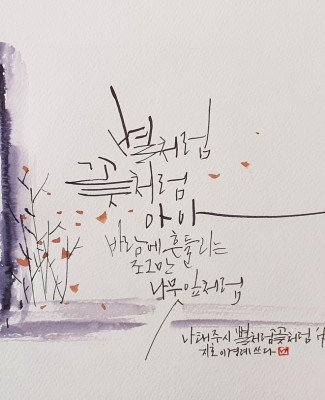 별처럼
꽃처럼
아아
바람에 흔들리는
조그만
나무 잎처럼
나태주시 별처럼 꽃처럼
지호 이경례 쓰다